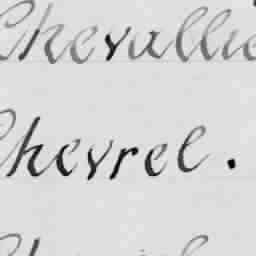 Chevallie
Chevrel.